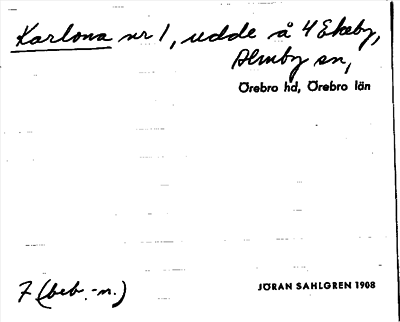 Karlona nr 1, udde å 4 Ekeby,
Almby sn,
Örebro hd, Örebro län
7 (beb.-n.)
JÖRAN SAHLGREN 1908